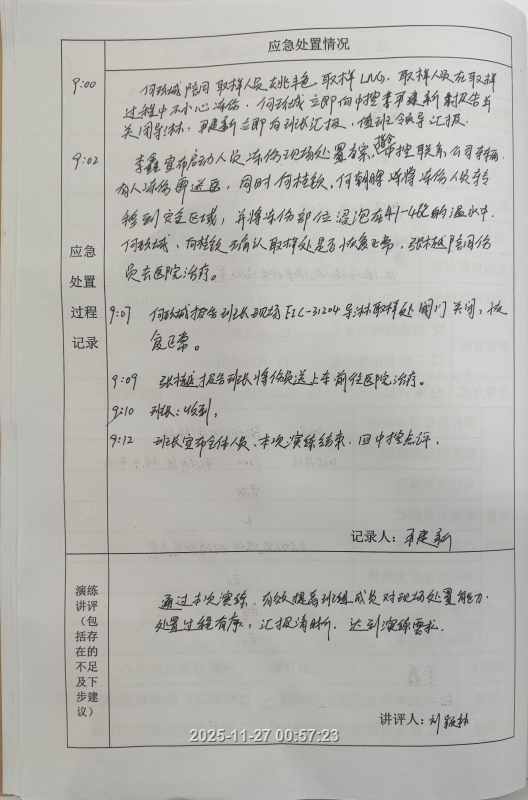 应急处置情况
9:00 何玖城陪同取样人员姚丰色取样LNG。取样人员在取样
过程中不小心冻伤。何玖城立即向中控 建新报告并
关闭导淋。 建新立即向班长汇报，值班领导汇报。
9:02 李鑫宣布启动人员冻伤现场处置方案，指令中控联系公司车辆
有人冻伤需送医，同时何桂钦、何朝晖 将冻伤人员转
移到安全区域，并将冻伤部位浸泡在41-42℃的温水中。
何玖城、何桂钦确认取样处是否恢复正常，张 越陪同伤
员去医院治疗。
应急
处置
过程
记录
9:07 何玖城报告班长现场 -31204导淋取样处阀门关闭，恢
复正常。
9:09 张 越报告班长将伤员送上车前往医院治疗。
9:10 班长：收到。
9:12 班长宣布全体人员，本次演练结束。回中控点评。
记录人： 建新
演练
讲评
（包
括存
在的
不足
及下
步建
议）
通过本次演练，有效提高班组成员对现场处置能力。
处置过程有序，汇报清晰。达到演练要求。
讲评人：刘
2025-11-27 00:57:23